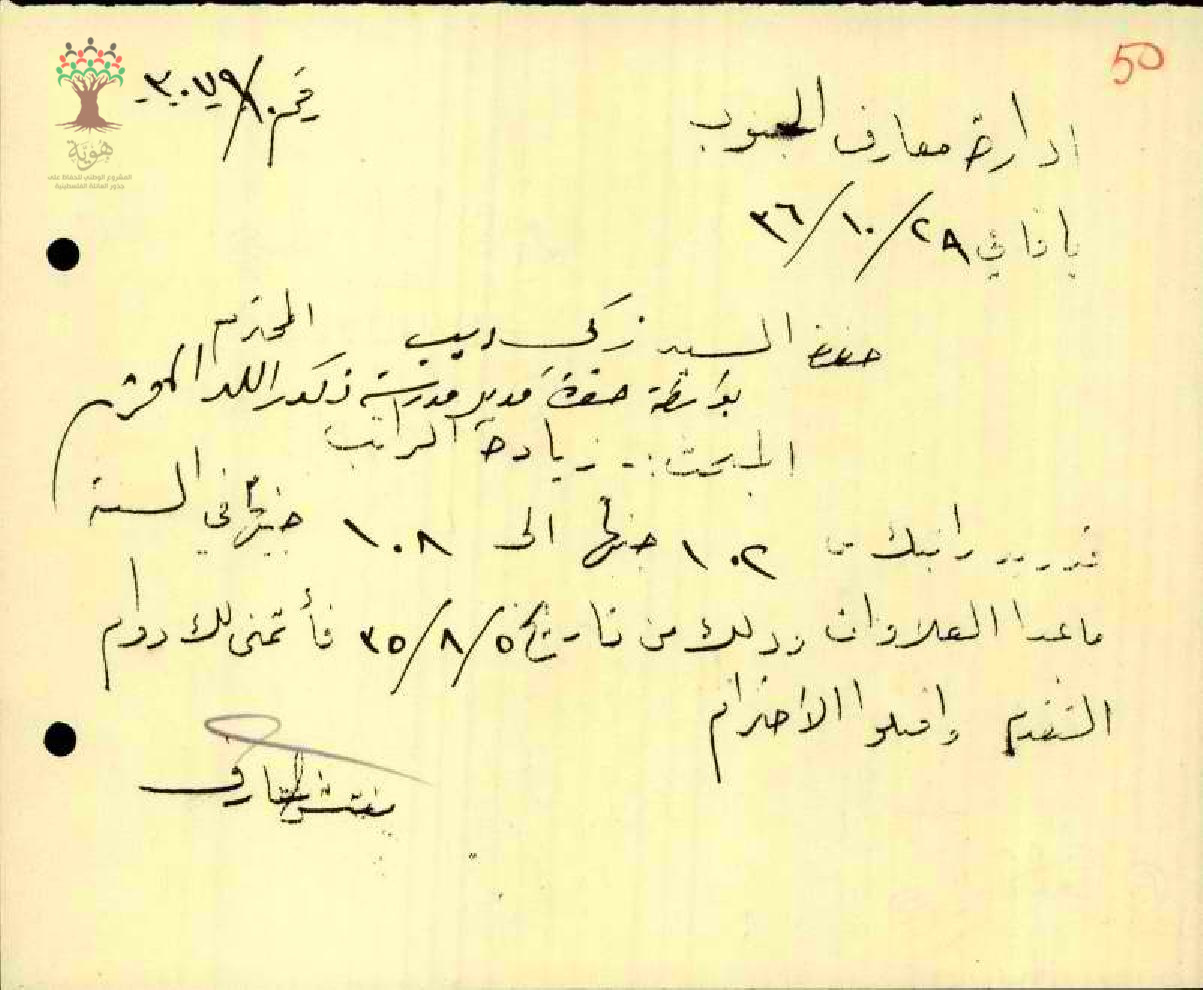 50
ادارة معارف الجنوب
رقم ٣٠٧٩/١٠
هوية
المشروع الوطني للحفاظ على
جذور العائلة الفلسطينية
يافا في ٢٩/١٠/٣٦
حضرة السيد زكي ديب المحترم
بواسطة حضرة مدير مدرسة ذكور اللد المحترم
المبحث :- زيادة الراتب
قد زيد راتبك من ١٠٢ جنيها الى ١٠٨ جنيها في السنة
ما عدا العلاوات وذلك من تاريخ ٥/٨/٣٥ فأتمنى لك دوام
التقدم واقبلوا الاحترام
مفتش المعارف